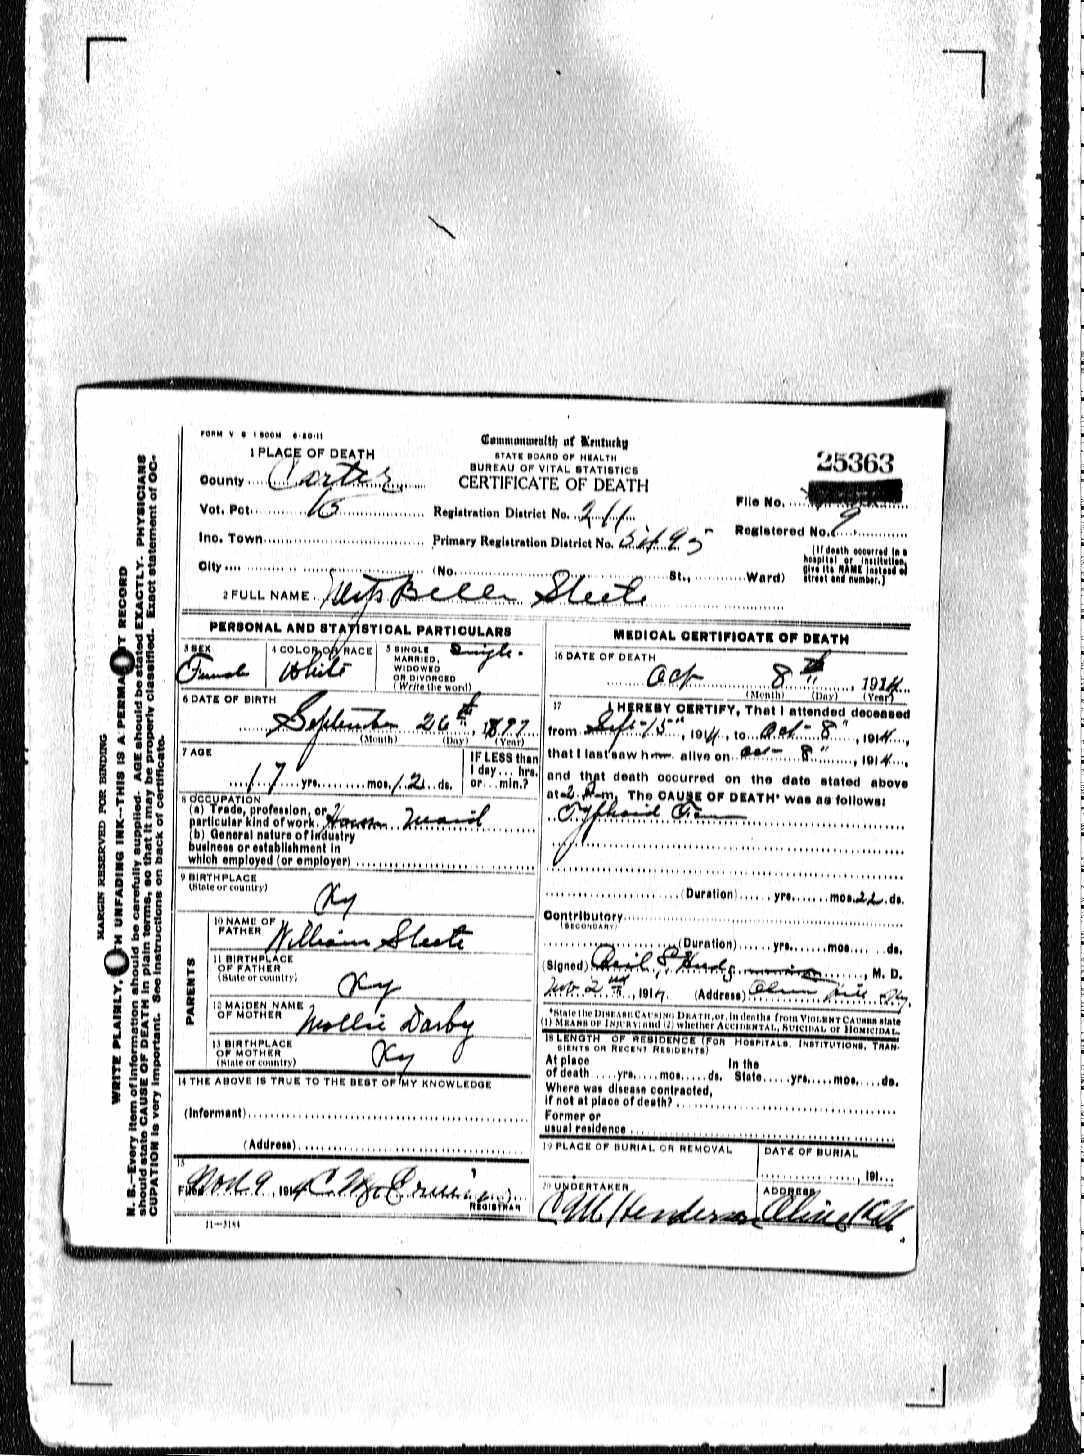 FORM V S 1 500M 6-20-11
Commonwealth of Kentucky
STATE BOARD OF HEALTH
BUREAU OF VITAL STATISTICS
CERTIFICATE OF DEATH
25363
1 PLACE OF DEATH
County Carter
Vot. Pct. 16
Inc. Town
City
Registration District No. 211
Primary Registration District No. 5495
(No. St., Ward)
File No.
Registered No. 9
(If death occurred in a hospital or institution, give its NAME instead of street and number.)
2 FULL NAME Belle Steele
PERSONAL AND STATISTICAL PARTICULARS
3 SEX
Female
4 COLOR OR RACE
White
5 SINGLE MARRIED, WIDOWED OR DIVORCED (Write the word)
Single.
6 DATE OF BIRTH
September 26th, 1897
(Month) (Day) (Year)
7 AGE
17 yrs. mos. 12 ds.
IF LESS than 1 day... hrs. or...min.?
8 OCCUPATION
(a) Trade, profession, or particular kind of work House maid
(b) General nature of industry
business or establishment in
which employed (or employer)
9 BIRTHPLACE
(State or country)
Ky
PARENTS
10 NAME OF FATHER William Steele
11 BIRTHPLACE OF FATHER (State or country)
Ky
12 MAIDEN NAME OF MOTHER Mollie Darby
13 BIRTHPLACE OF MOTHER (State or country)
Ky
14 THE ABOVE IS TRUE TO THE BEST OF MY KNOWLEDGE
(Informant)
(Address)
15
Filed Nov 9, 1914
REGISTRAR
11-3184
MEDICAL CERTIFICATE OF DEATH
16 DATE OF DEATH
Oct 8th, 1914
(Month) (Day) (Year)
17 I HEREBY CERTIFY, That I attended deceased
from Sept-15", 1914, to Oct-8", 1914,
that I last saw h alive on Oct-8", 1914,
and that death occurred on the date stated above
at 2 m, The CAUSE OF DEATH* was as follows:
Typhoid Fever
(Duration) yrs. mos. 22 ds.
Contributory
(SECONDARY)
(Duration) yrs. mos. ds.
(Signed) , M. D.
Nov 2nd, 1914 (Address) Olive Hill Ky.
*State the DISEASE CAUSING DEATH, or, in deaths from VIOLENT CAUSES state
(1) MEANS OF INJURY; and (2) whether ACCIDENTAL, SUICIDAL or HOMICIDAL.
18 LENGTH OF RESIDENCE (FOR HOSPITALS, INSTITUTIONS, TRANSIENTS OR RECENT RESIDENTS)
At place of death yrs. mos. ds. In the State yrs. mos. ds.
Where was disease contracted,
if not at place of death?
Former or
usual residence
19 PLACE OF BURIAL OR REMOVAL
DATE OF BURIAL
191
20 UNDERTAKER
C M Henderson
ADDRESS
Olive Hill
MARGIN RESERVED FOR BINDING
WRITE PLAINLY, UNFADING INK--THIS IS A PERMA T RECORD
N. B.--Every item of information should be carefully supplied. AGE should be stated EXACTLY. PHYSICIANS
should state CAUSE OF DEATH in plain terms, so that it may be properly classified. Exact statement of OC-
CUPATION is very important. See instructions on back of certificate.